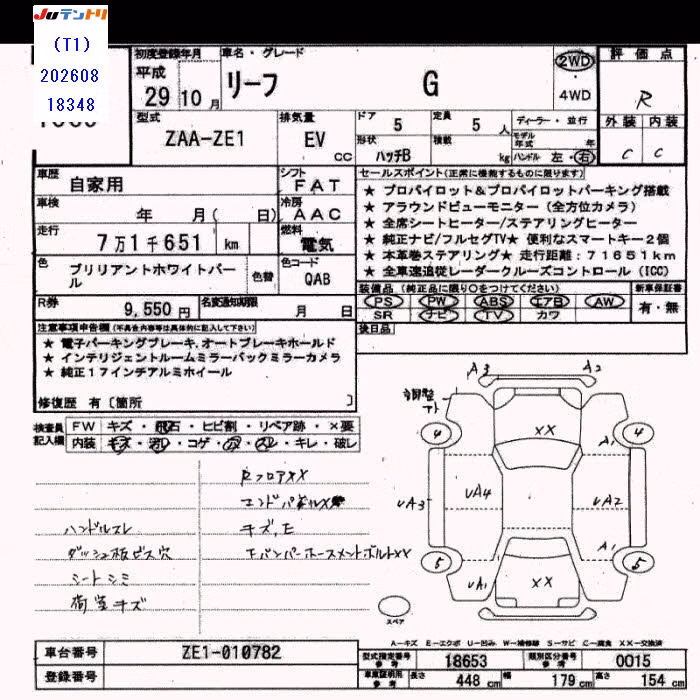 JUテントリ
(T1)
202608
18348
初度登録年月
平成
29 10 月
車名・グレード
リーフ G
2WD
・
4WD
評価点
R
型式
ZAA-ZE1
排気量
EV
cc
ドア 5
定員 5 人
形状 ハッチB
積載 kg
ディーラー・並行
モデル年式 年式
ハンドル 左・右
外装 内装
C C
車歴
自家用
シフト
FAT
車検
年 月( 日)
冷房
AAC
走行
7万1千651 km
燃料
電気
色
ブリリアントホワイトパール
色替
色コード
QAB
R券
9,550円
名変通知期限
月 日
セールスポイント(正常に機能するものに限ります)
★ プロパイロット&プロパイロットパーキング搭載
★ アラウンドビューモニター (全方位カメラ)
★ 全席シートヒーター/ステアリングヒーター
★ 純正ナビ/フルセグTV★ 便利なスマートキー2個
★ 本革巻ステアリング★ 走行距離:71651km
★ 全車速追従レーダークルーズコントロール (ICC)
装備品 (純正品に限り○をつけてください)
新車保証書
PS PW ABS エアB AW
SR ナビ TV カワ
有・無
後日品
注意事項申告欄(不具合内容等は具体的に記入して下さい)
★ 電子パーキングブレーキ,オートブレーキホールド
★ インテリジェントルームミラーバックミラーカメラ
★ 純正17インチアルミホイール
修復歴 有〔箇所 〕
検査員記入欄
FW キズ・飛石・ヒビ割・リペア跡・×要
内装 キズ・汚レ・コゲ・穴・スレ・キレ・破レ
RフロアXX
エンドパネルXX
ハンドルスレ
キズ,E
ダッシュ板ビス穴
Fバンパーホースメントボルト××
シートシミ
荷室キズ
A3 A2
調整
4 XX 4
A1
UA3 UA4 UA2
A1
5 UA1 XX 5
スペア
A-キズ E-エクボ U-凹み W-補修跡 S-サビ C-腐食 XX-交換済
車台番号
ZE1-010782
登録番号
型式指定番号 参考
18653
類別区分番号 参考
0015
車庫証明用 参考
長さ 448 cm
幅 179 cm
高さ 154 cm